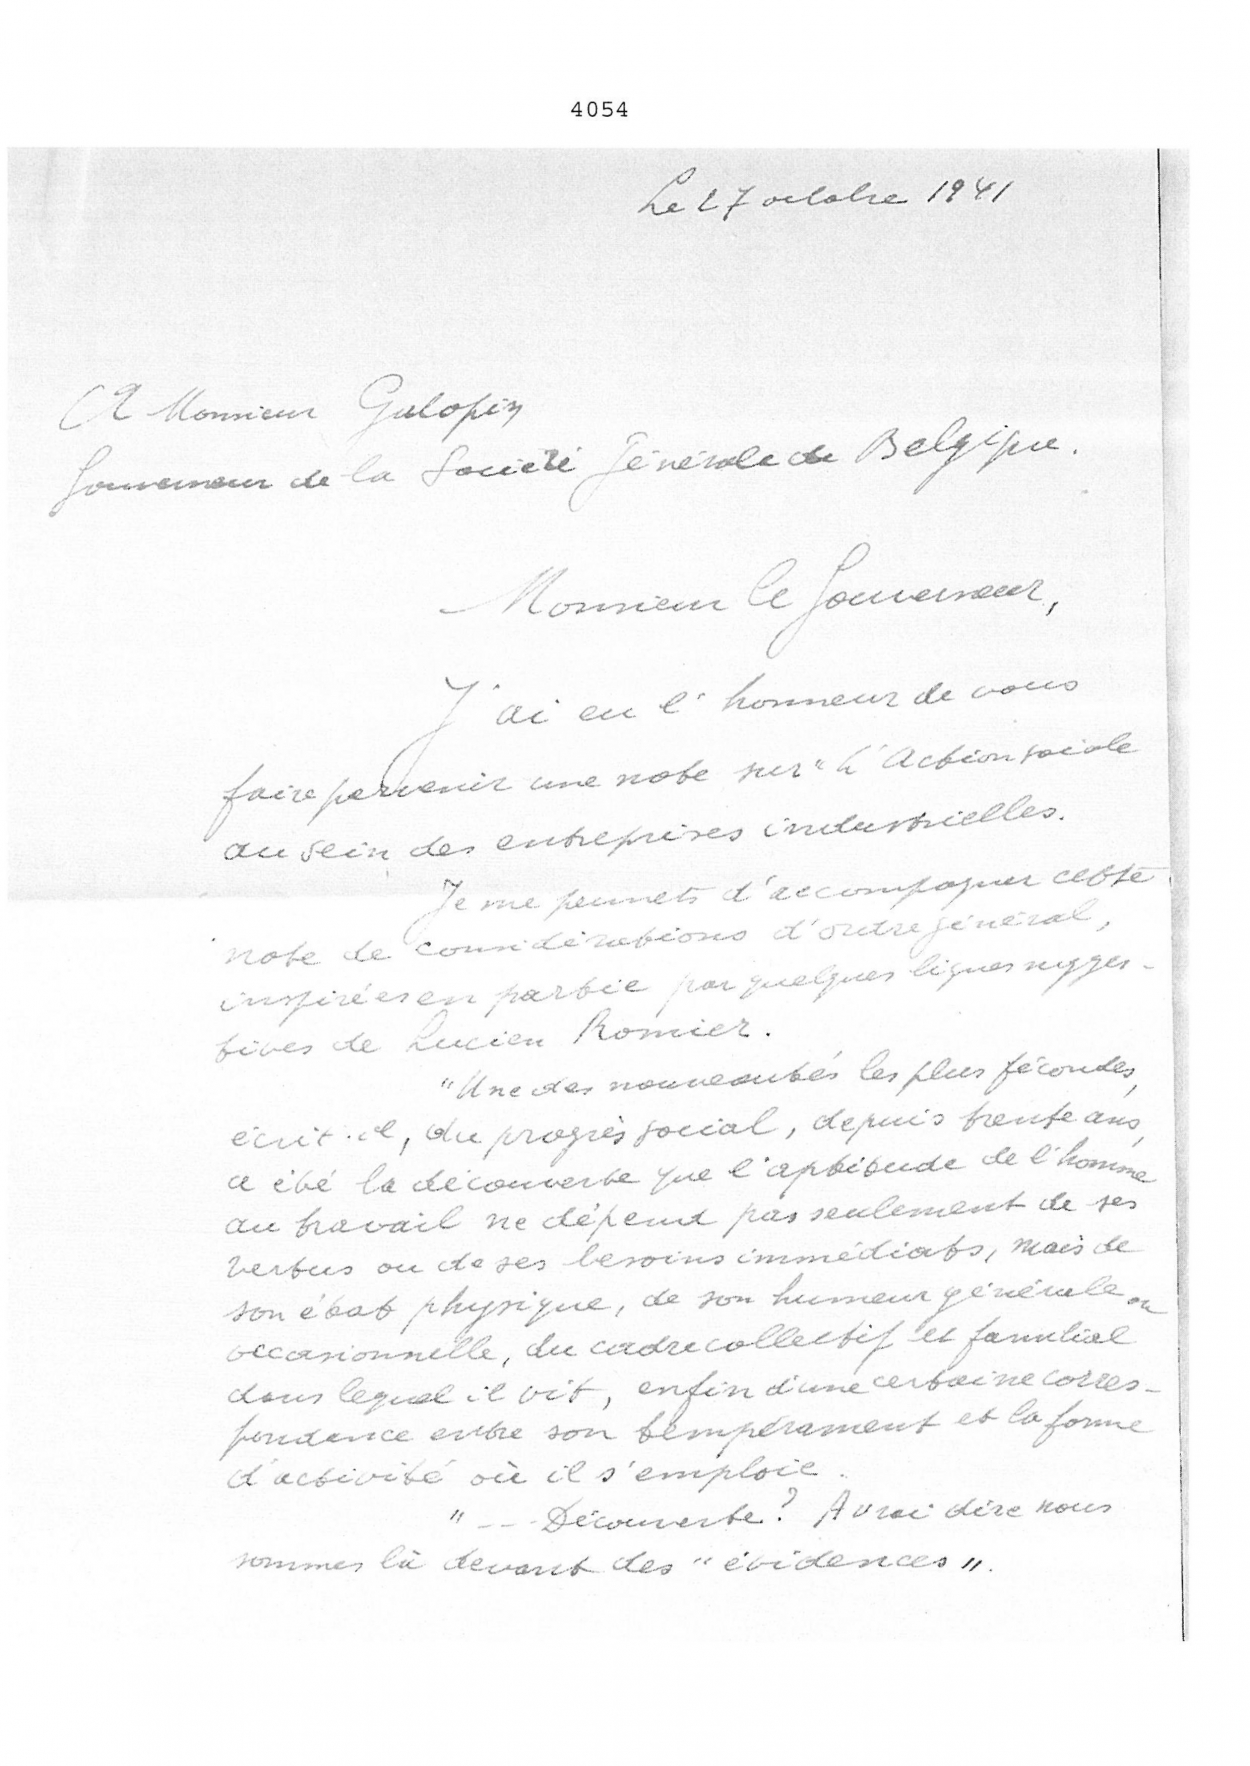 4054
Le 27 octobre 1941
A Monsieur Galopin
Gouverneur de la Société Générale de Belgique.
Monsieur le Gouverneur,
J'ai eu l'honneur de vous
faire parvenir une note sur "L'Action sociale
au sein des entreprises industrielles.
Je me permets d'accompagner cette
note de considérations d'ordre général,
inspirées en partie par quelques lignes sugges-
tives de Lucien Romier.
"Une des nouveautés les plus fécondes,
écrit-il, du progrès social, depuis trente ans,
a été la découverte que l'aptitude de l'homme
au travail ne dépend pas seulement de ses
vertus ou de ses besoins immédiats, mais de
son état physique, de son humeur générale ou
occasionnelle, du cadre collectif et familial
dans lequel il vit, enfin d'une certaine corres-
pondance entre son tempérament et la forme
d'activité où il s'emploie.
" --- Découverte? A vrai dire nous
sommes là devant des "évidences".